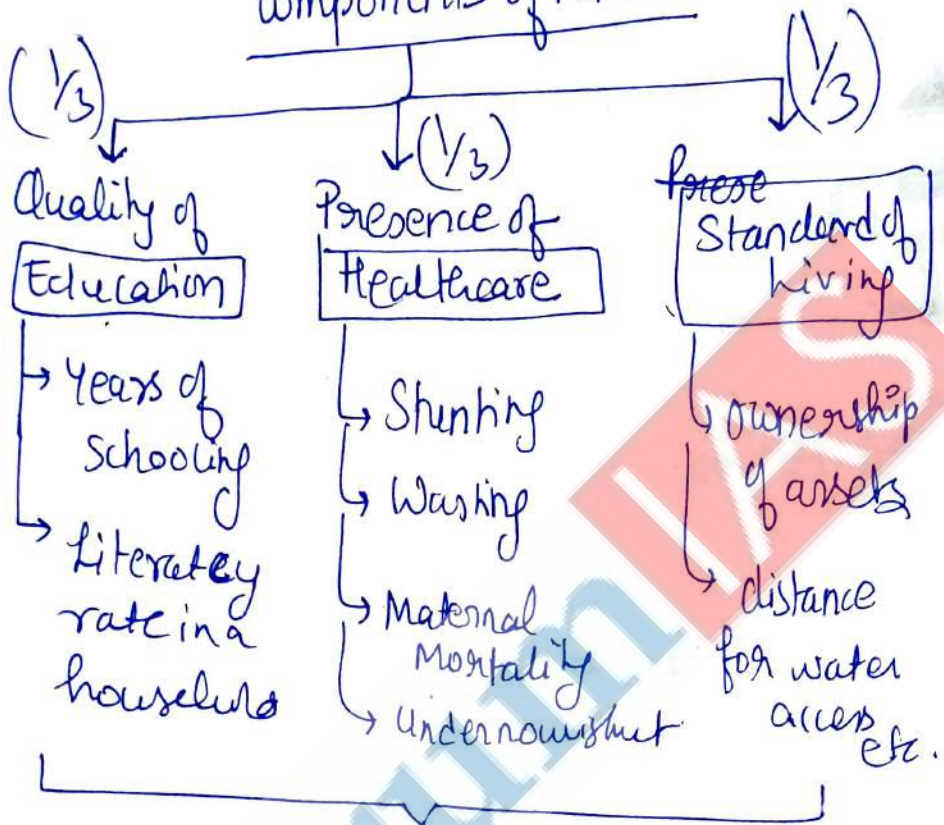 components of
(1/3)
(1/3)
(1/3)
Quality of
Education
→ Years of
Schooling
→ Literatcy
rate in a
household
Presence of
Healthcare
→ Stunting
→ Wasting
→ Maternal
Mortality
→ Undernourishmt
Prese
Standard of
Living
→ ownership
of assets
→ distance
for water
access
etc.
um IAS